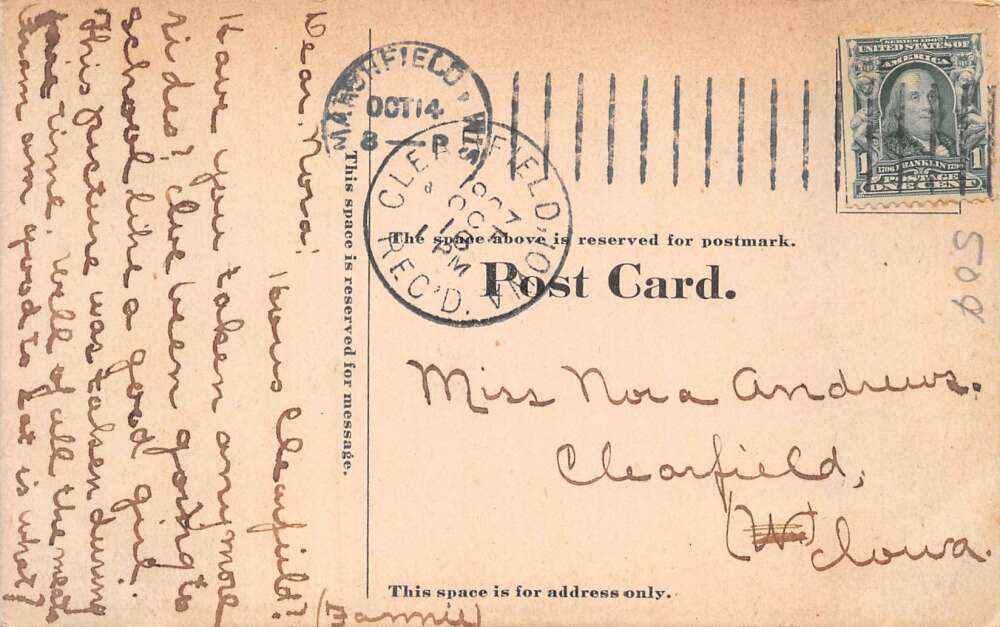 Dear Nora!
Hows Clearfield?
Have you taken any more
rides? I've been going to
school like a good girl.
This Pisture was taksen during
time. Well of all the meats
am good to Eat is what?
(Fannie)
This space is reserved for message.
MARSHFIELD, WIS.
OCT 14
8 — P
CLEARFIELD, IOWA
1907
OCT
PM
REC'D.
SERIES 1902
UNITED STATES OF
AMERICA
1 FRANKLIN 1
1706 1790
POSTAGE
ONE CENT
The space above is reserved for postmark.
Post Card.
Miss Nora Andrews.
Clearfield,
(W) Iowa.
This space is for address only.